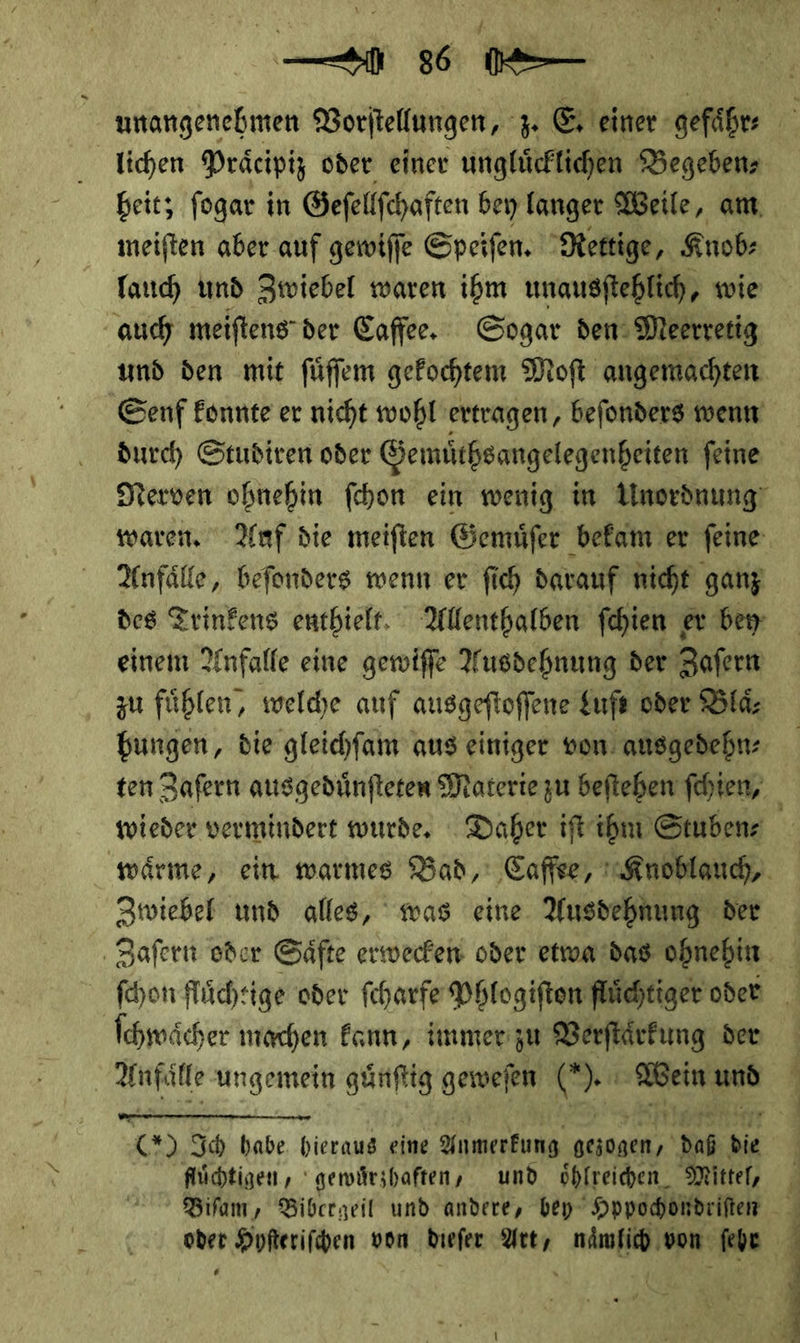 86
unangenehmen Vorstellungen, z. E. einer gefähr⸗
lichen Präcipiz oder einer unglücklichen Begeben⸗
heit; sogar in Gesellschaften bey langer Weile, am
meisten aber auf gewisse Speisen. Rettige, Knob⸗
lauch und Zwiebel waren ihm unausstehlich, wie
auch meistens der Caffee. Sogar den Meerretig
und den mit süssem gekochtem Most angemachten
Senf konnte er nicht wohl ertragen, besonders wenn
durch Studiren oder Gemüthsangelegenheiten seine
Nerven ohnehin schon ein wenig in Unordnung
waren. Auf die meisten Gemüser bekam er seine
Anfälle, besonders wenn er sich darauf nicht ganz
des Trinkens enthielt. Allenthalben schien er bey
einem Anfalle eine gewisse Ausdehnung der Zasern
zu fühlen, welche auf ausgestossene Luft oder Blä⸗
hungen, die gleichsam aus einiger von ausgedehn⸗
ten Zasern ausgedünsteten Materie zu bestehen schien,
wieder vermindert wurde. Daher ist ihm Stuben⸗
wärme, ein warmes Bad, Caffee, Knoblauch,
Zwiebel und alles, was eine Ausdehnung der
Zasern oder Säfte erwecken oder etwa das ohnehin
schon flüchtige oder scharfe Phlogiston flüchtiger oder
schwächer machen kann, immer zu Verstärkung der
Anfälle ungemein günstig gewesen (*). Wein und
(*) Ich habe hieraus eine Anmerkung gezogen, daß die
flüchtigen, gewürzhaften, und öhlreichen Mittel,
Bisam, Bibergeil und andere, bey Hyppochondristen
oder Hysterischen von dieser Art, nämlich von sehr